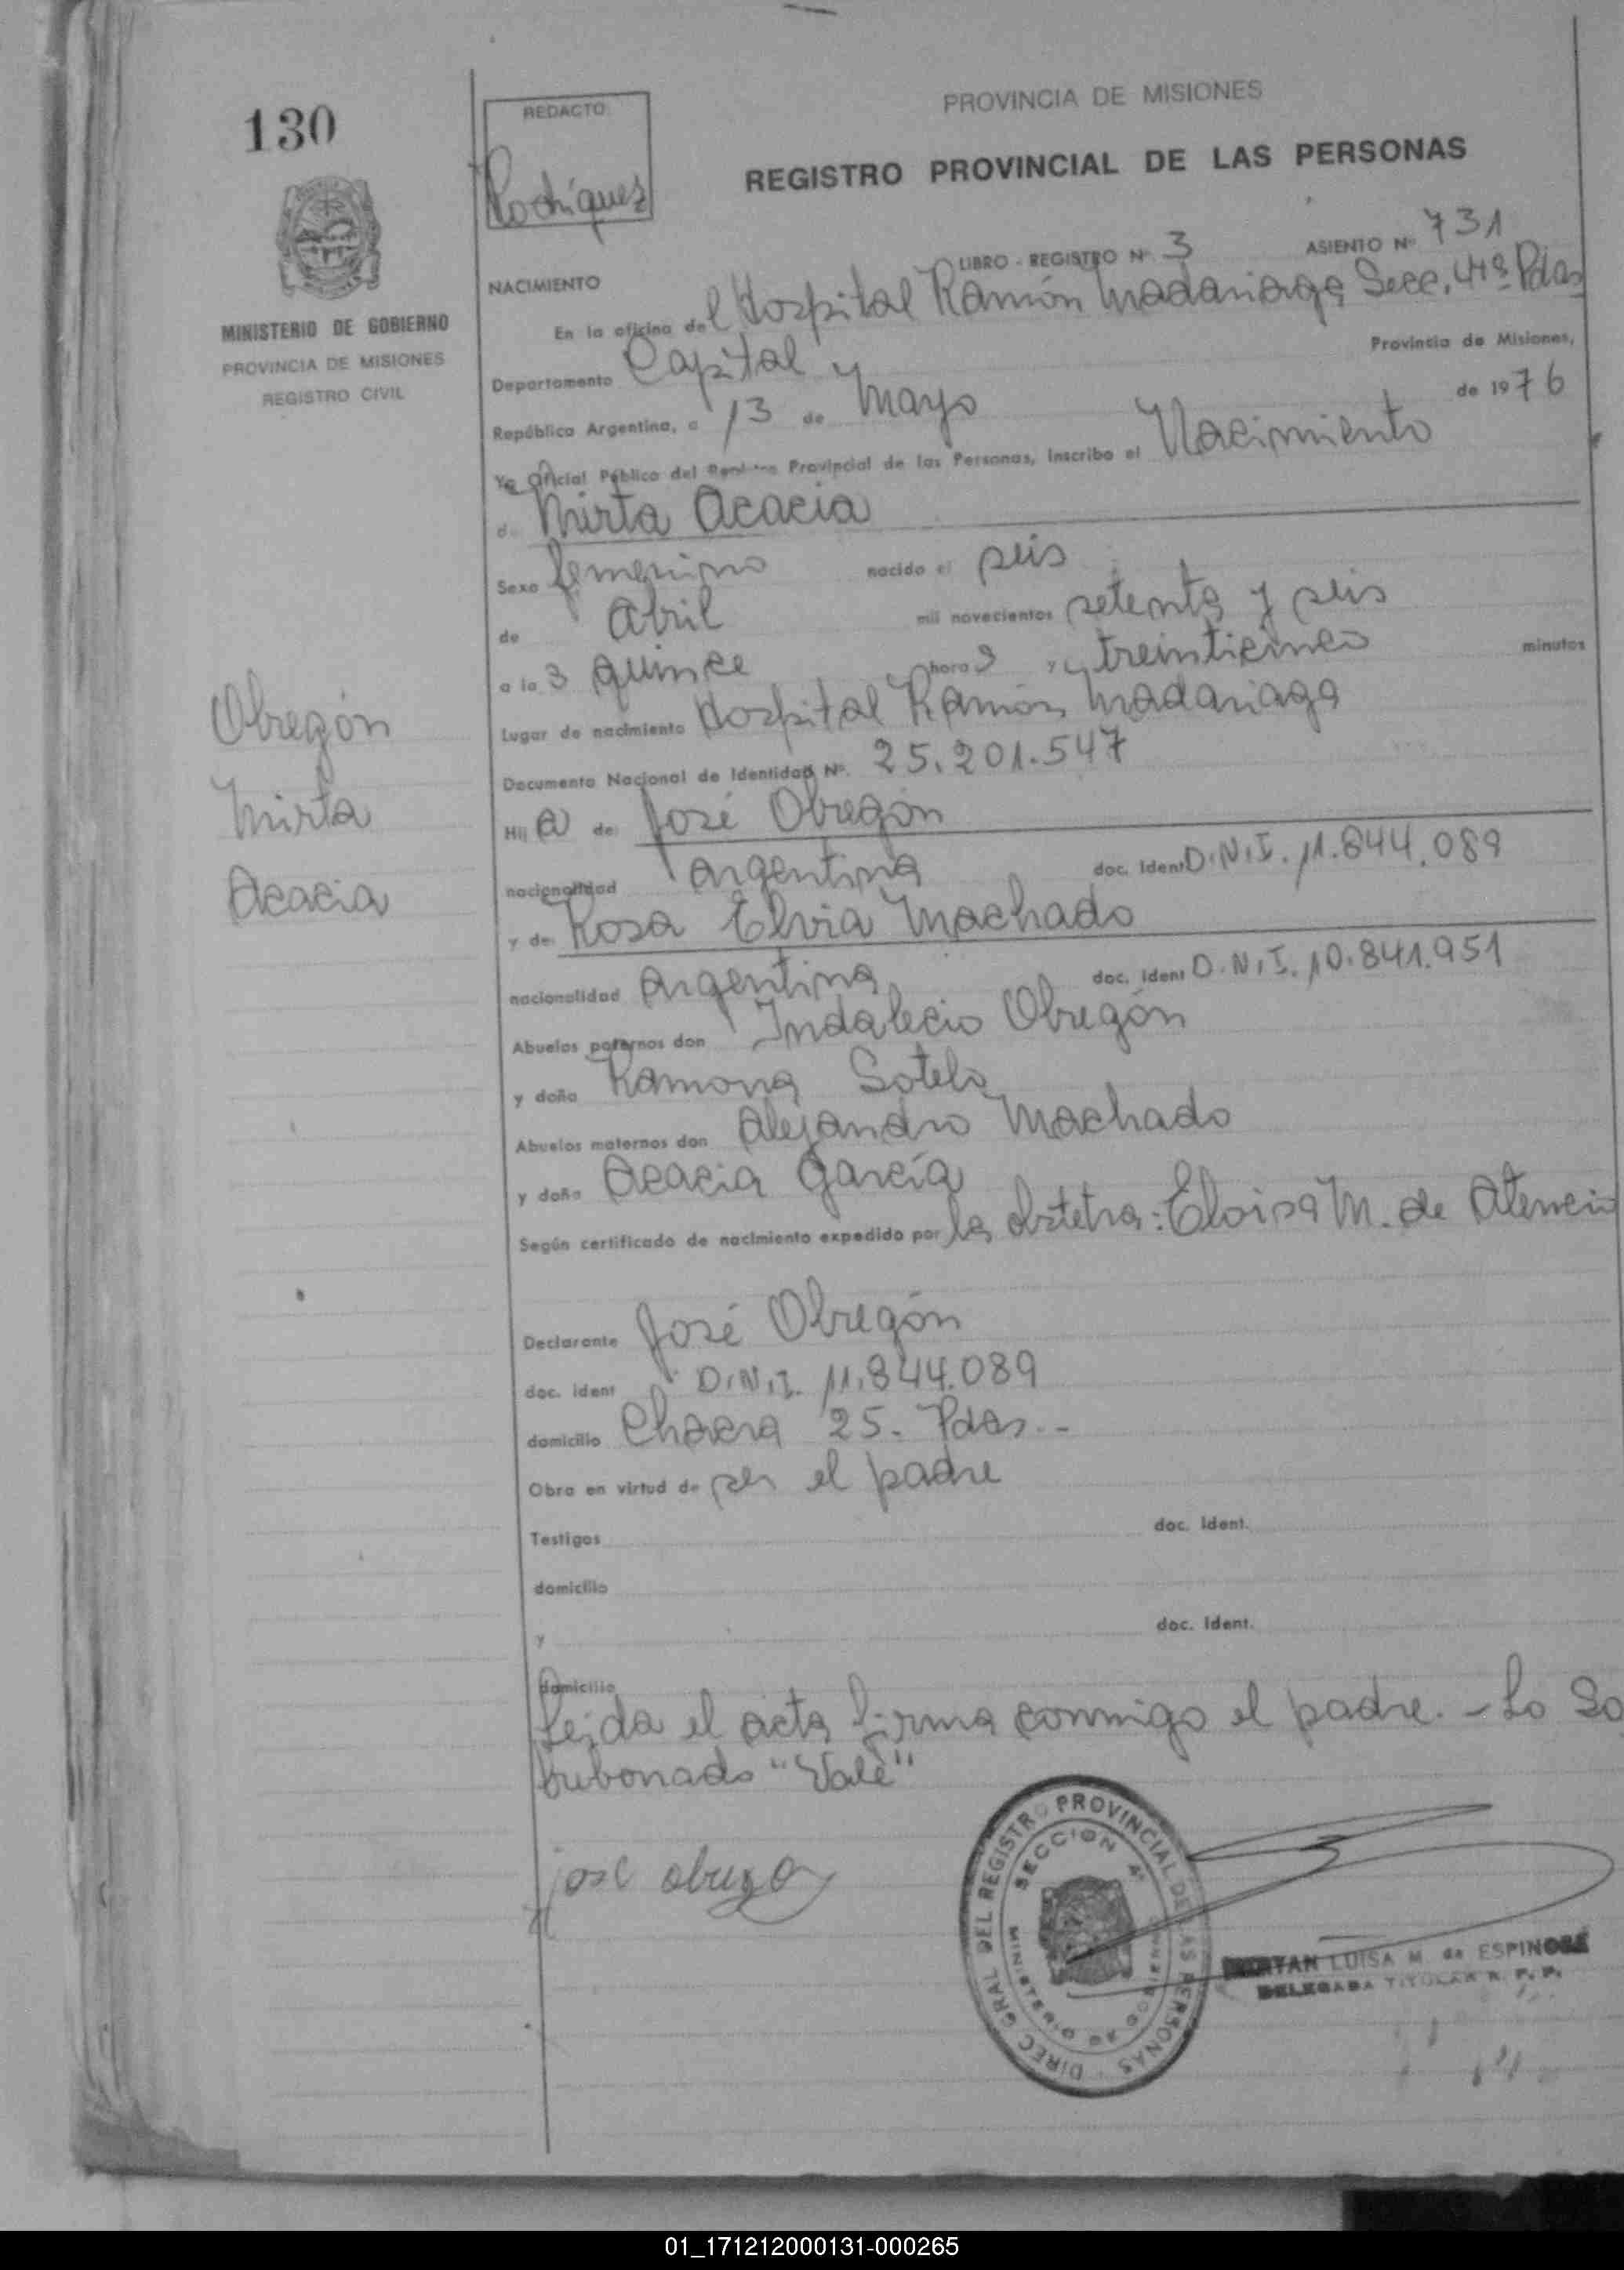 130
REDACTO:
Rodríguez
PROVINCIA DE MISIONES
REGISTRO PROVINCIAL DE LAS PERSONAS
MINISTERIO DE GOBIERNO
PROVINCIA DE MISIONES
REGISTRO CIVIL
LIBRO - REGISTRO Nº 3 ASIENTO Nº 731
NACIMIENTO
En la oficina del Hospital Ramón Madariaga Secc. 4ta Pdas
Departamento Capital Provincia de Misiones,
República Argentina, a 13 de Mayo de 1976
Yo Oficial Público del Registro Provincial de las Personas, inscribo el Nacimiento
de Mirta Acacia
Sexo femenino nacido el seis
de Abril mil novecientos setenta y seis
a las quince horas y treinticinco minutos
Lugar de nacimiento Hospital Ramón Madariaga
Documento Nacional de Identidad Nº. 25.201.547
Obregón
Mirta
Acacia
Hij a de: José Obregón
nacionalidad Argentina doc. Ident D.N.I. 11.844.089
y de: Rosa Elvia Machado
nacionalidad Argentina doc. Ident D.N.I. 10.841.951
Abuelos paternos don Indalecio Obregón
y doña Ramona Sotelo
Abuelos maternos don Alejandro Machado
y doña Acacia García
Según certificado de nacimiento expedido por la obstetra: Eloisa M. de Atencio
Declarante José Obregón
doc. ident D.N.I. 11.844.089
domicilio Chacra 25. Pdas.-
Obra en virtud de ser el padre
Testigos doc. Ident.
domicilio
y doc. Ident.
domicilio
Leída el acta firma conmigo el padre. - Lo So
"Vale"
jose obrego
DIREC. GRAL. DEL REGISTRO PROVINCIAL DE LAS PERSONAS
SECCION 4ª
MINISTERIO DE GOBIERNO
LUISA M. de ESPINOSA
DELEGADA TITULAR R. P. P.
01_171212000131-000265